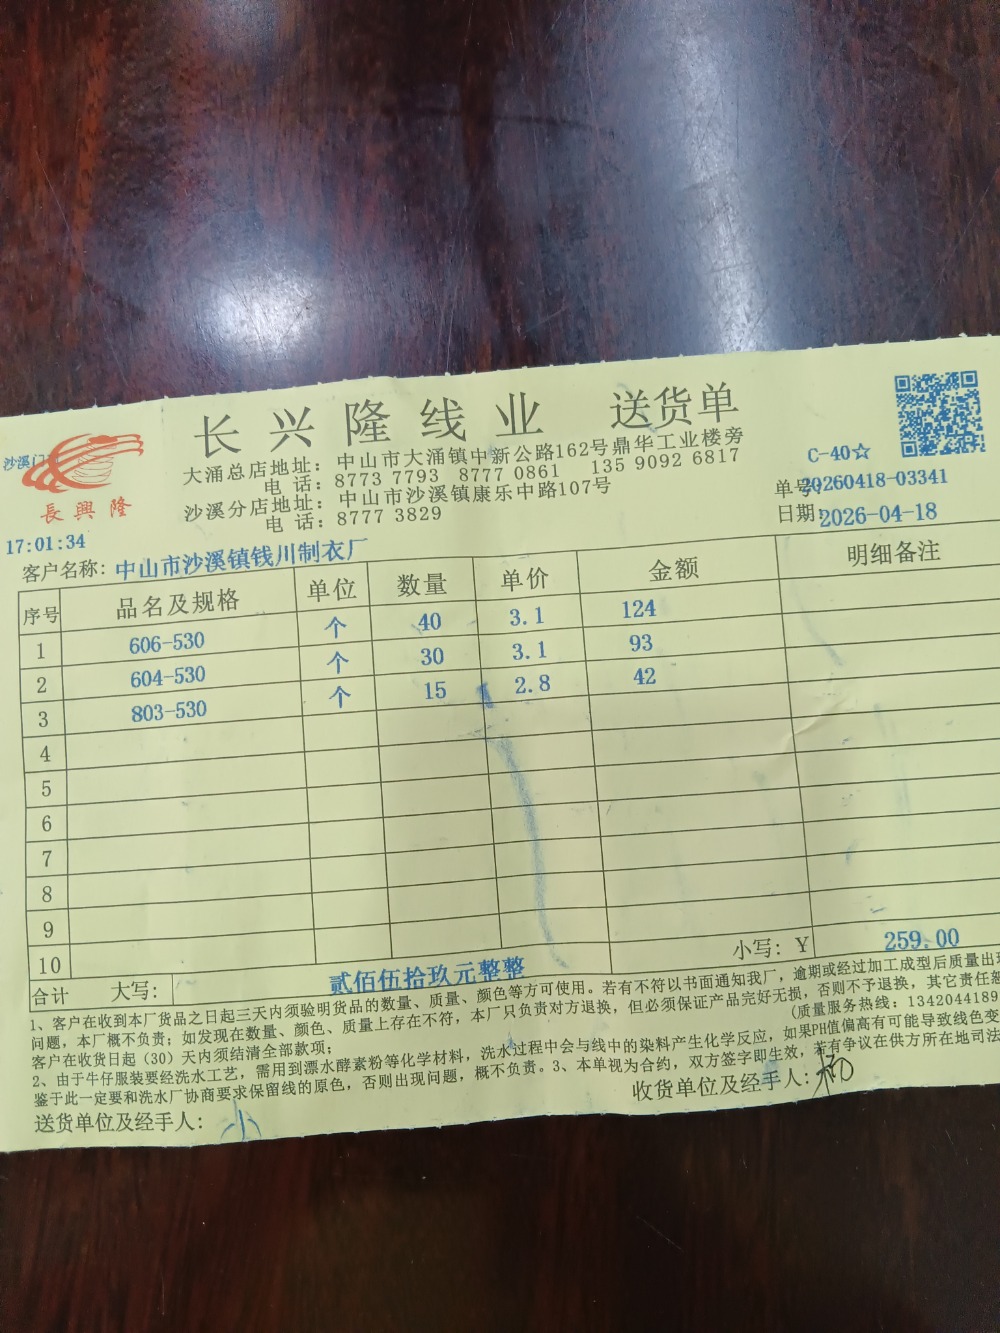 长兴隆线业 送货单
大涌总店地址：中山市大涌镇中新公路162号鼎华工业楼旁
电 话：8773 7793 8777 0861 135 9092 6817
沙溪分店地址：中山市沙溪镇康乐中路107号
电 话：8777 3829
沙溪门
長興隆
C-40☆
单号：20260418-03341
日期：2026-04-18
17:01:34
客户名称：中山市沙溪镇钱川制衣厂
序号 品名及规格 单位 数量 单价 金额 明细备注
1 606-530 个 40 3.1 124
2 604-530 个 30 3.1 93
3 803-530 个 15 2.8 42
4
5
6
7
8
9
10
合计 大写： 贰佰伍拾玖元整整 小写：Y 259.00
1、客户在收到本厂货品之日起三天内须验明货品的数量、质量、颜色等方可使用。若有不符以书面通知我厂，逾期或经过加工成型后质量出现
问题，本厂概不负责；如发现在数量、颜色、质量上存在不符，本厂只负责对方退换，但必须保证产品完好无损，否则不予退换，其它责任
客户在收货日起（30）天内须结清全部款项； (质量服务热线：1342044189
2、由于牛仔服装要经洗水工艺，需用到漂水酵素粉等化学材料，洗水过程中会与线中的染料产生化学反应，如果PH值偏高有可能导致线色变
鉴于此一定要和洗水厂协商要求保留线的原色，否则出现问题，概不负责。3、本单视为合约，双方签字即生效，若有争议在供方所在地司法
送货单位及经手人：小 收货单位及经手人：杨